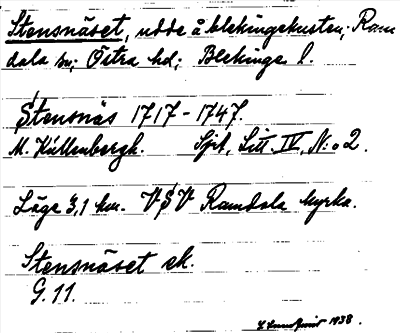 Stensnäset, udde å blekingekusten; Ram
dala sn; Östra hd; Blekinge l.
Stensnäs 1717-1747.
M. Källenbergh. Sjrt, Litt. IV, N:o 2.
Läge 3,1 km. VSV Ramdala kyrka.
Stensnäset ek.
G. 11.
1938.